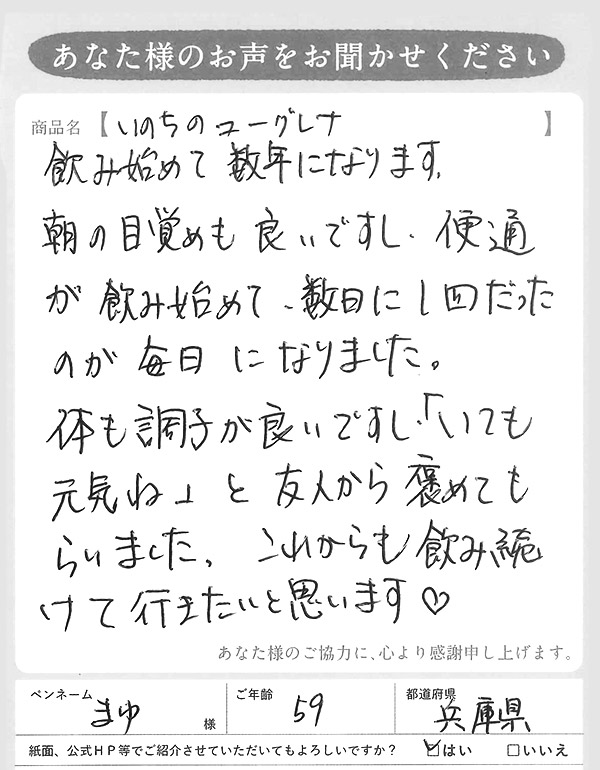 あなた様のお声をお聞かせください
商品名【いのちのユーグレナ】
飲み始めて数年になります。
朝の目覚めも良いですし、便通
が飲み始めて、数日に1回だった
のが毎日になりました。
体も調子が良いですし、「いても
元気ね」と友人から褒めても
らいました。これからも飲み続
けて行きたいと思います♡
あなた様のご協力に、心より感謝申し上げます。
ペンネーム まゆ 様 ご年齢 59 都道府県 兵庫県
紙面、公式HP等でご紹介させていただいてもよろしいですか? ☑はい □いいえ